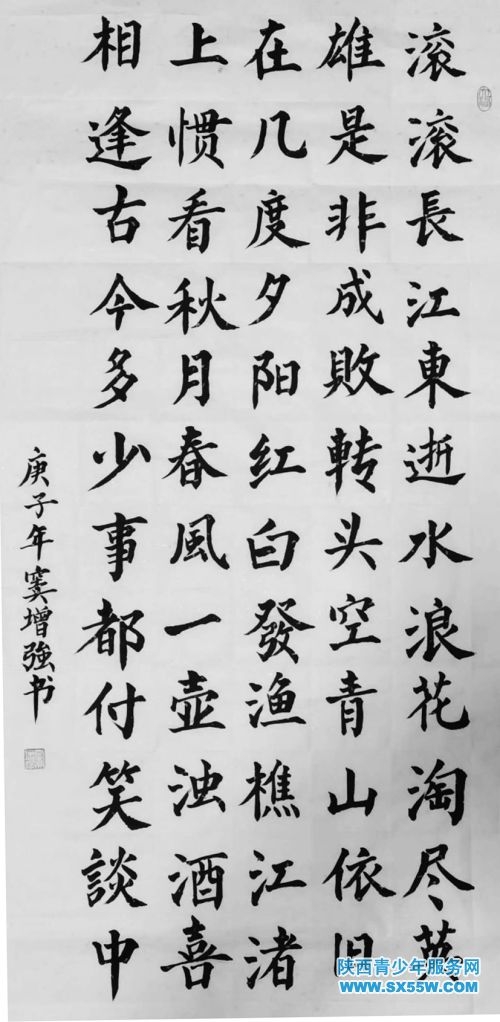 滚滚長江東逝水浪花淘尽英
雄是非成敗转头空青山依旧
在几度夕阳红白發渔樵江渚
上惯看秋月春風一壶浊酒喜
相逢古今多少事都付笑談中
庚子年窦增強书
陕西青少年服务网
WWW.SX55W.COM